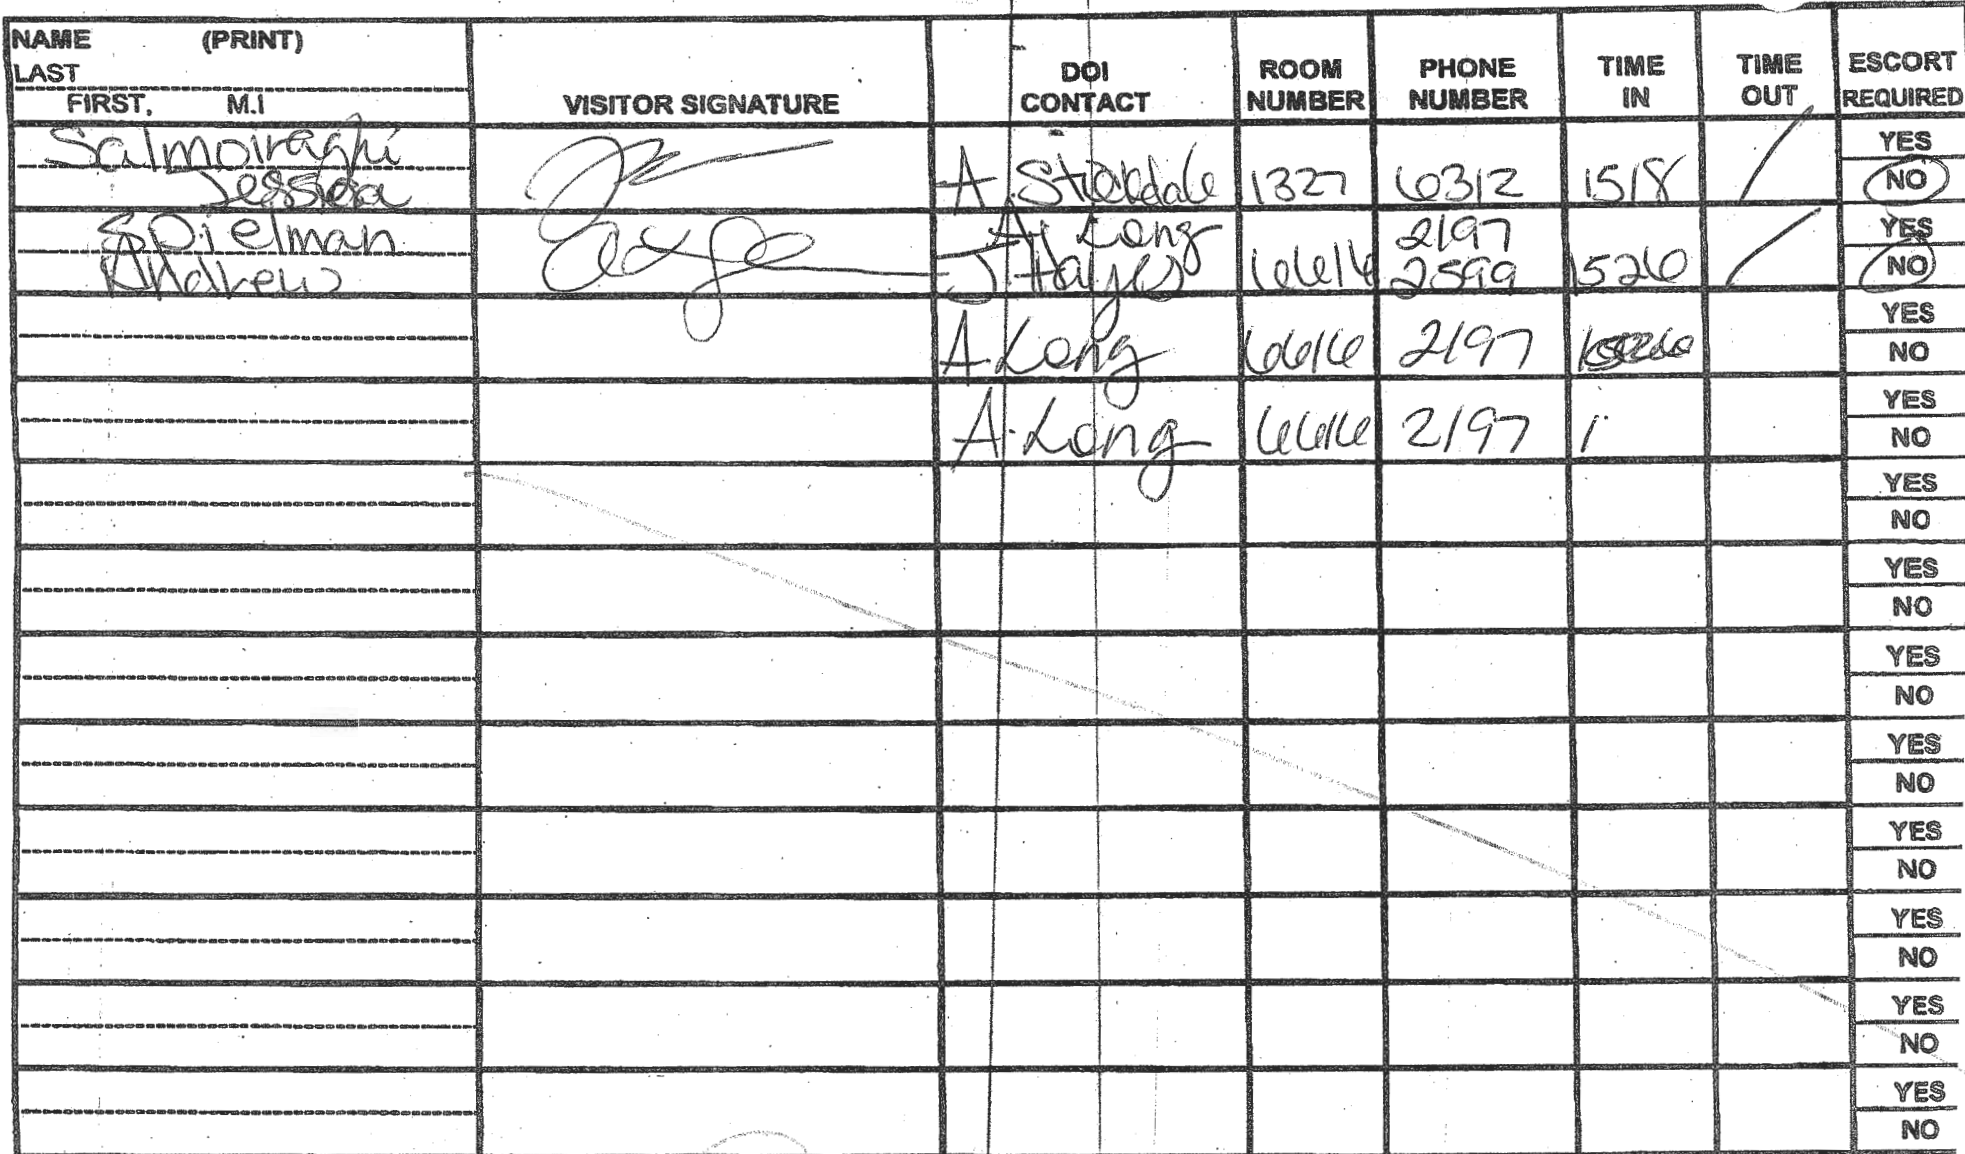 NAME (PRINT)
LAST
FIRST, M.I
VISITOR SIGNATURE
DOI CONTACT
ROOM NUMBER
PHONE NUMBER
TIME IN
TIME OUT
ESCORT REQUIRED
Salmoiraghi
Jessica
A. Stockdale 1327 6312 1518 / YES NO
Spielman
Andrew
A. Long 2197
J Hayes 6616 2599 1526 / YES NO
A. Long 6616 2197 1526 YES NO
A. Long 6616 2197 1 YES NO
YES
NO
YES
NO
YES
NO
YES
NO
YES
NO
YES
NO
YES
NO
YES
NO